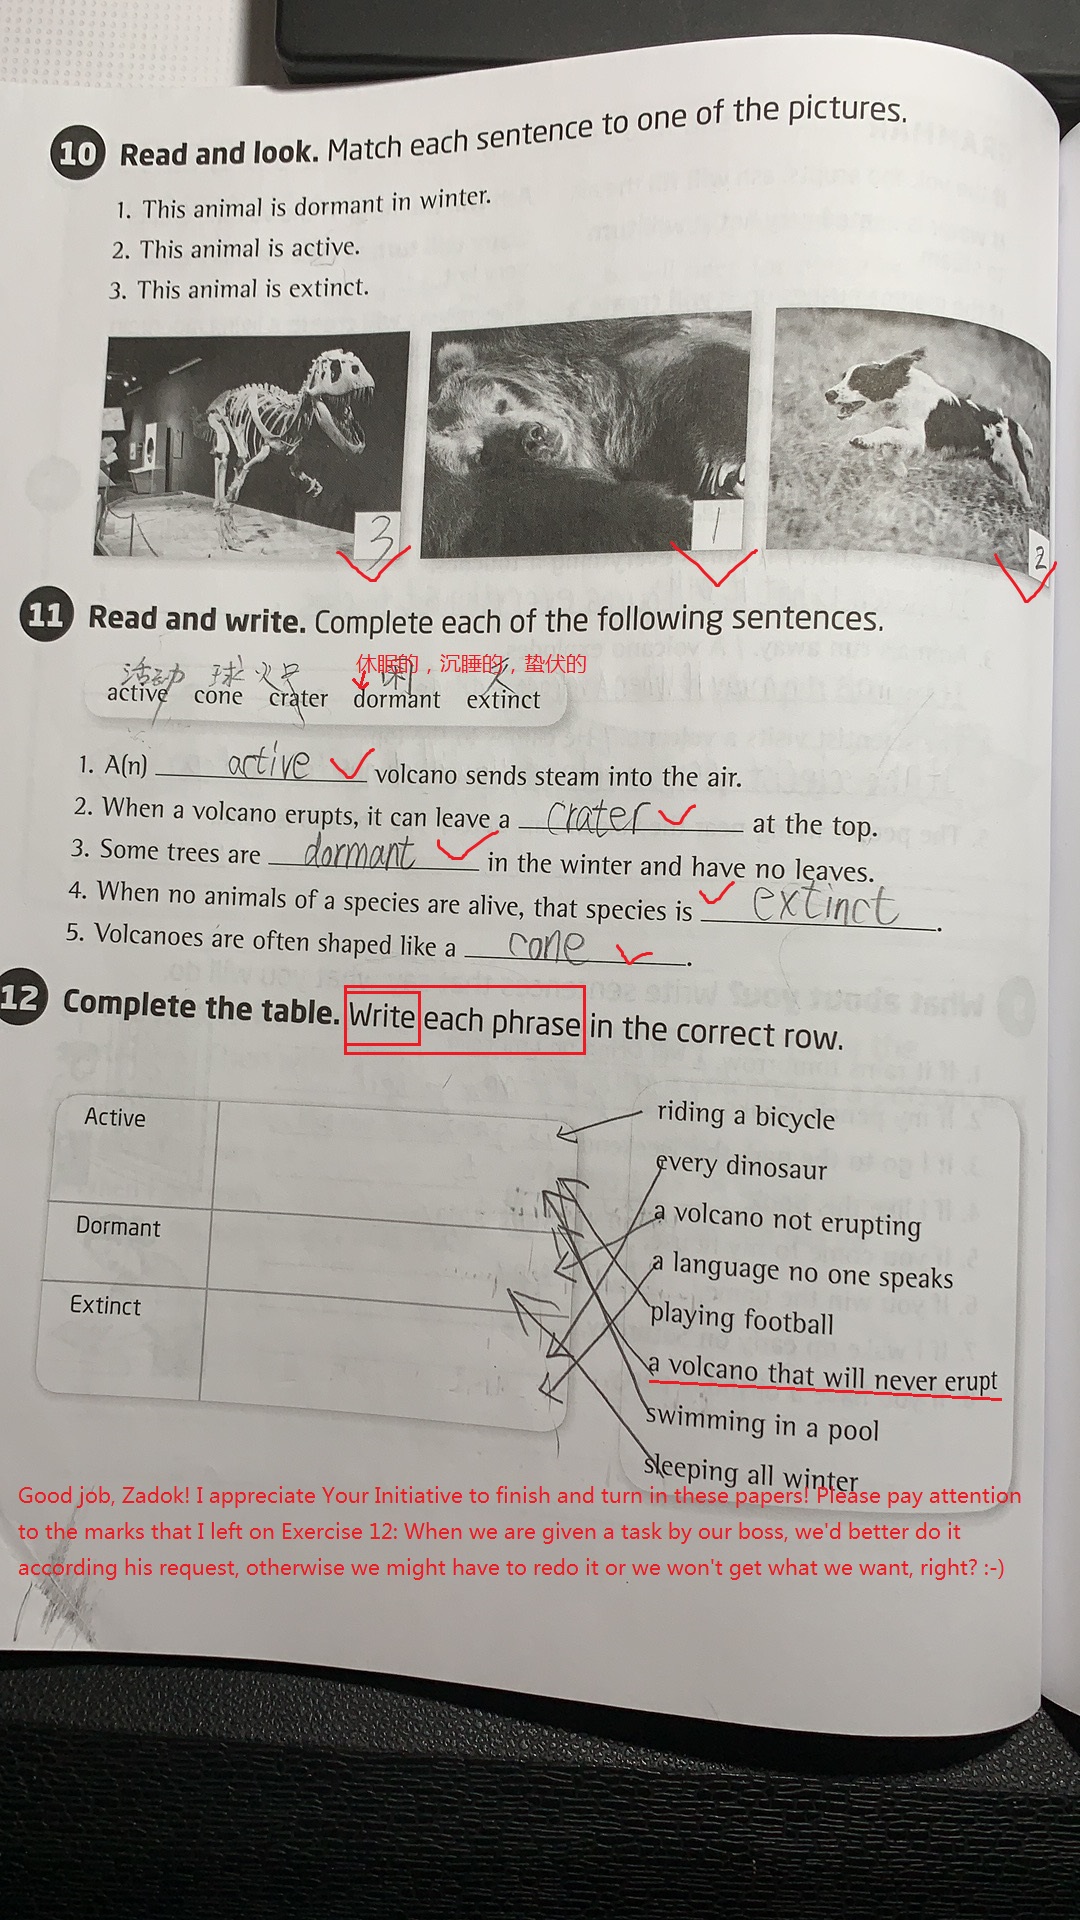 10 Read and look. Match each sentence to one of the pictures.
1. This animal is dormant in winter.
2. This animal is active.
3. This animal is extinct.
3
1
2
11 Read and write. Complete each of the following sentences.
活动 球 火
休眠的，沉睡的，蛰伏的
active cone crater dormant extinct
1. A(n) active volcano sends steam into the air.
2. When a volcano erupts, it can leave a crater at the top.
3. Some trees are dormant in the winter and have no leaves.
4. When no animals of a species are alive, that species is extinct.
5. Volcanoes are often shaped like a cone.
12 Complete the table. Write each phrase in the correct row.
Active
Dormant
Extinct
riding a bicycle
every dinosaur
a volcano not erupting
a language no one speaks
playing football
a volcano that will never erupt
swimming in a pool
sleeping all winter
Good job, Zadok! I appreciate Your Initiative to finish and turn in these papers! Please pay attention
to the marks that I left on Exercise 12: When we are given a task by our boss, we'd better do it
according his request, otherwise we might have to redo it or we won't get what we want, right? :-)